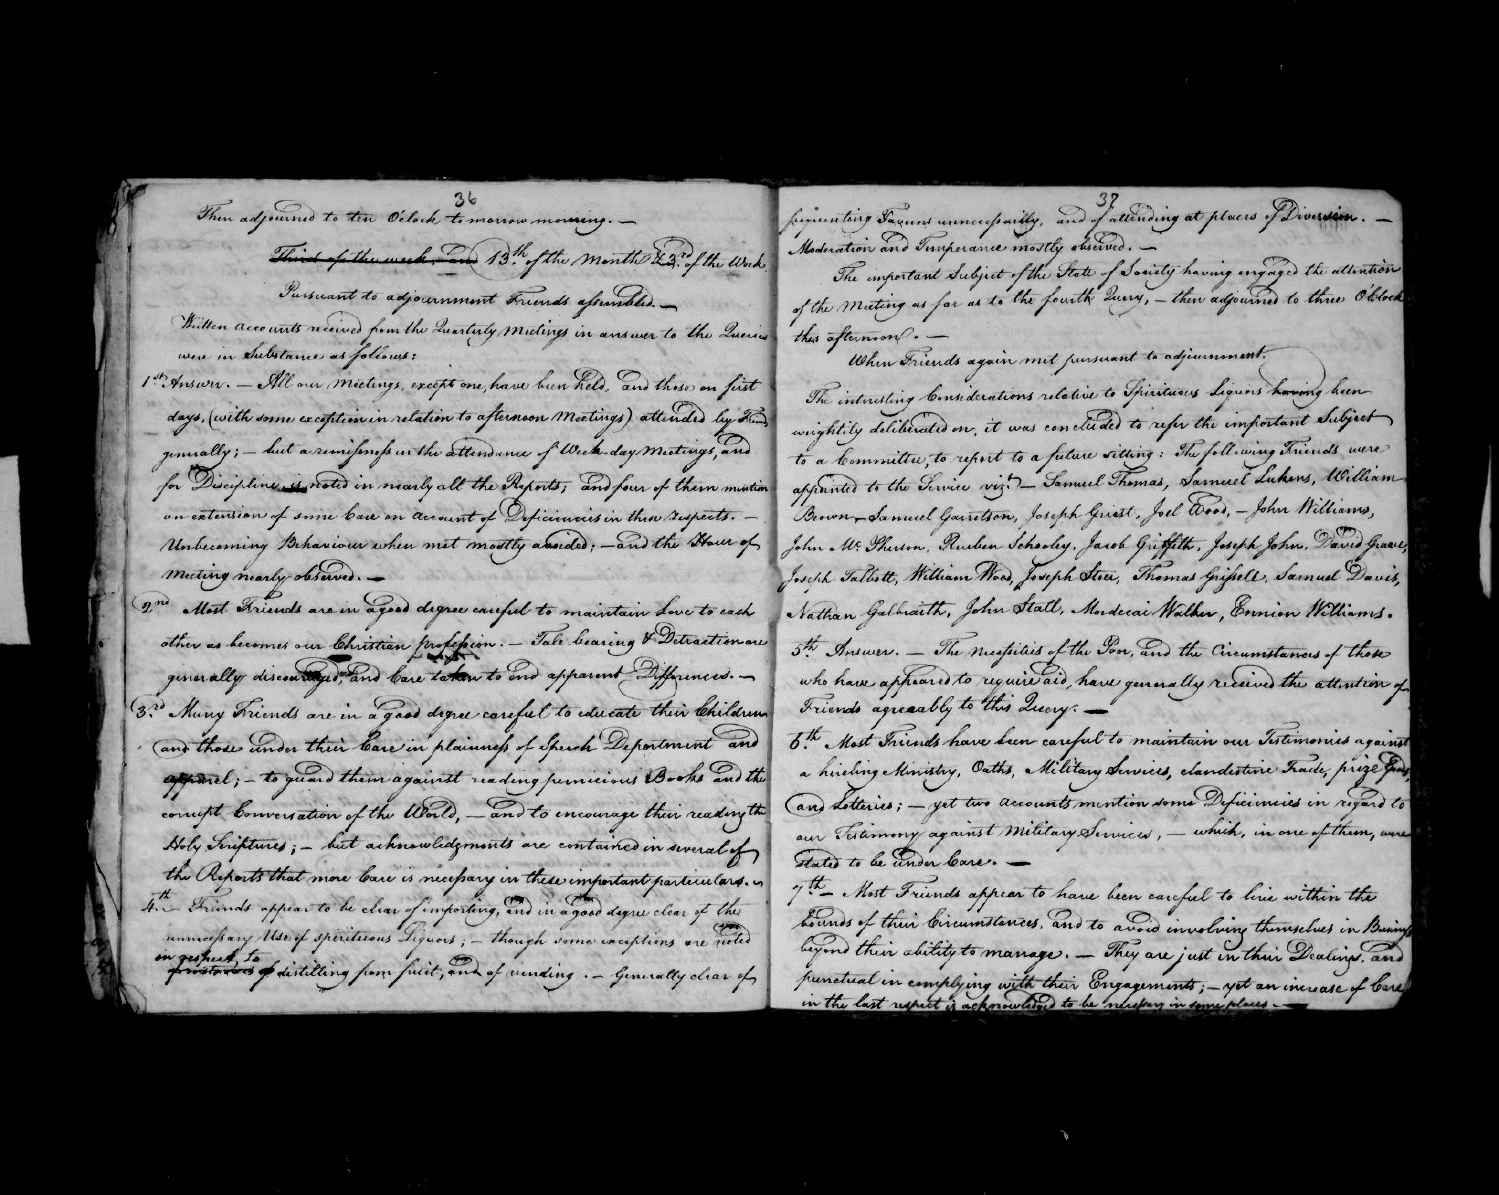 36
Then adjourned to ten O'clock to morrow morning. —
Third of the week 13th of the Month & 3rd of the Week
Pursuant to adjournment Friends assembled. —
Written accounts received from the Quarterly Meetings in answer to the Queries
were in Substance as follows:
1st Answer. — All our Meetings, except one, have been held, and those on first
days, (with some exception in relation to afternoon Meetings) attended by Friends
generally; — but a remissness in the attendance of Week-day Meetings, and
for Discipline is noted in nearly all the Reports; and four of them mention
an extension of some Care on account of Deficiencies in these respects. —
Unbecoming Behaviour when met mostly avoided; — and the Hour of
Meeting nearly observed. —
2nd Most Friends are in a good degree careful to maintain Love to each
other as becomes our Christian profession. — Tale bearing & Detraction are
generally discouraged, and Care taken to end apparent Differences. —
3rd Many Friends are in a good degree careful to educate their Children
and those under their Care in plainness of Speech Deportment and
apparel; — to guard them against reading pernicious Books and the
corrupt Conversation of the World, — and to encourage their reading the
Holy Scriptures; — but acknowledgments are contained in several of
the Reports that more Care is necessary in these important particulars. —
4th Friends appear to be clear of importing, and in a good degree clear of the
unnecessary Use of spirituous Liquors; — though some exceptions are noted
in respect to
distilling from fruit, and of vending. — Generally clear of
37
frequenting Taverns unnecessarily, and of attending at places of Diversion. —
Moderation and Temperance mostly observed. —
The important Subject of the State of Society having engaged the attention
of the Meeting as far as to the fourth Query, — then adjourned to three O'Clock
this afternoon. —
When Friends again met pursuant to adjournment.
The interesting Considerations relative to Spirituous Liquors having been
weightily deliberated on, it was concluded to refer the important Subject
to a Committee, to report to a future sitting: The following Friends were
appointed to the Service vizt — Samuel Thomas, Samuel Lukens, William
Brown — Samuel Garretson, Joseph Griest, Joel Wood, — John Williams,
John McPherson, Reuben Schooley, Jacob Griffith, Joseph John, David Grave,
Joseph Talbott, William Wood, Joseph Steer, Thomas Grissell, Samuel Davis,
Nathan Galbraith, John Statt, Mordecai Walker, Ennion Williams.
5th Answer. — The necessities of the Poor, and the Circumstances of those
who have appeared to require aid, have generally received the attention of
Friends agreeably to this Query. —
6th Most Friends have been careful to maintain our Testimonies against
a hireling Ministry, Oaths, Military Services, clandestine Trade, prize Goods,
and Lotteries; — yet two accounts mention some Deficiencies in regard to
our Testimony against Military Services, — which, in one of them, were
stated to be under Care. —
7th — Most Friends appear to have been careful to live within the
bounds of their Circumstances, and to avoid involving themselves in Business
beyond their ability to manage. — They are just in their Dealings, and
punctual in complying with their Engagements; — yet an increase of Care
in the last respect is acknowledged to be necessary in some places. —